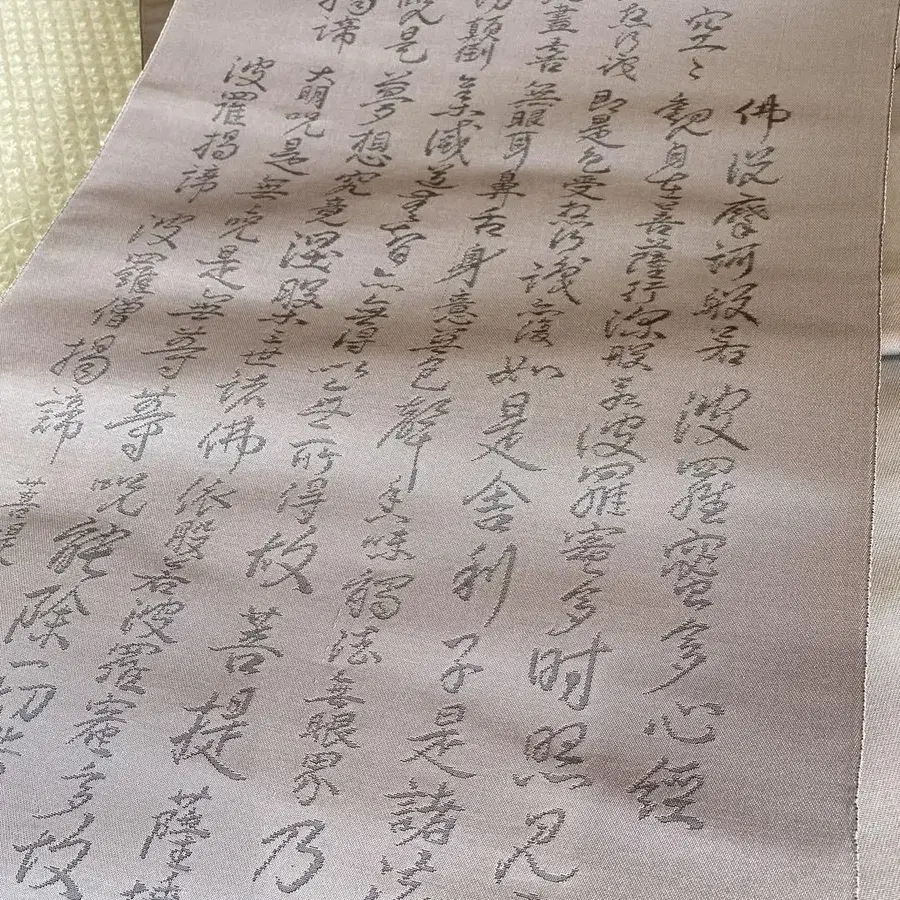 佛說摩訶般若波羅蜜多心經
空々
觀自在菩薩行深般若波羅蜜多時照見
想行識
即是色受想行識亦復如是舍利子是諸法
盡
無眼耳鼻舌身意無色聲香味觸法無眼界乃
切顛倒
集滅道無智亦無得以無所得故菩提薩埵
呪是
夢想究竟涅般三世諸佛依般若波羅蜜多故
揭諦
大明呪是無呪是無等等呪能除一切
波羅揭諦波羅僧揭諦菩提